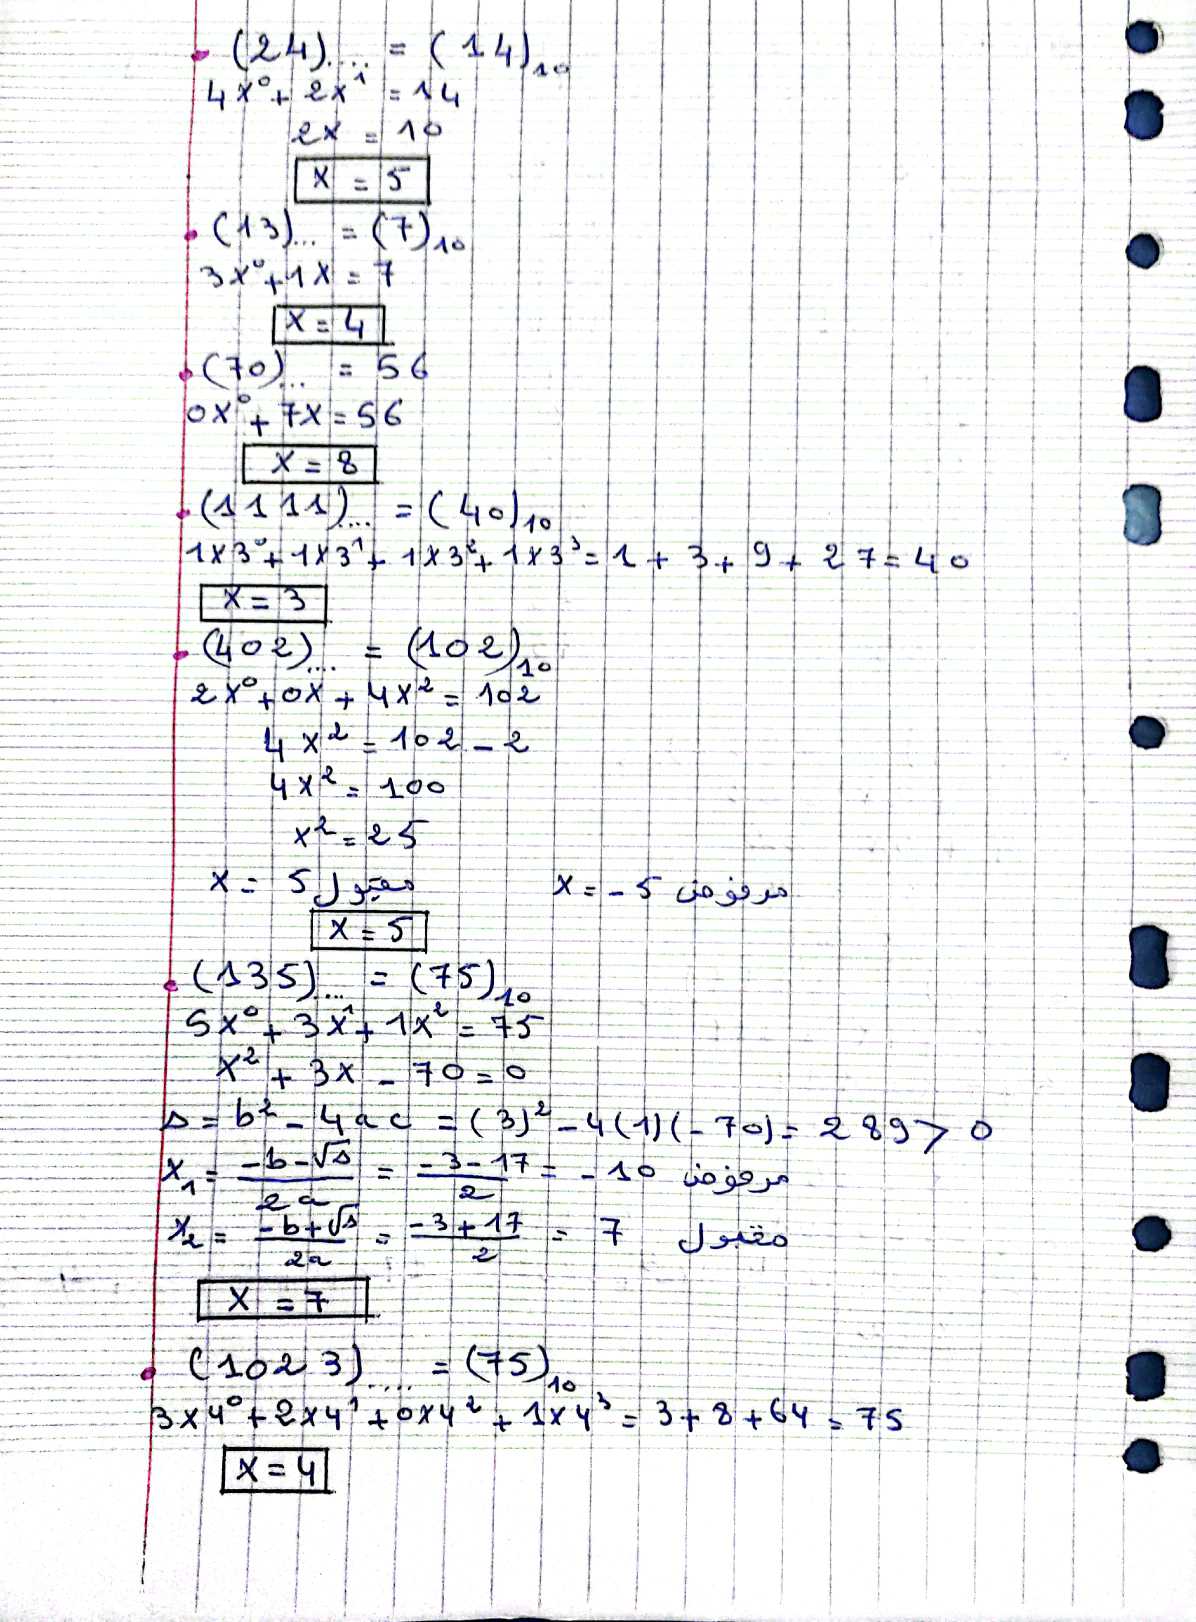 (24).... = (14)₁₀
4x⁰ + 2x¹ = 14
2x = 10
x = 5
(13)... = (7)₁₀
3x⁰ + 1x = 7
x = 4
(70)... = 56
0x⁰ + 7x = 56
x = 8
(1111).... = (40)₁₀
1x3⁰ + 1x3¹ + 1x3² + 1x3³ = 1 + 3 + 9 + 27 = 40
x = 3
(402).... = (102)₁₀
2x⁰ + 0x + 4x² = 102
4x² = 102 - 2
4x² = 100
x² = 25
x = 5 مقبول x = -5 مرفوض
x = 5
(135)... = (75)₁₀
5x⁰ + 3x¹ + 1x² = 75
x² + 3x - 70 = 0
Δ = b² - 4ac = (3)² - 4(1)(-70) = 289 > 0
x₁ = (-b-√Δ)/2a = (-3-17)/2 = -10 مرفوض
x₂ = (-b+√Δ)/2a = (-3+17)/2 = 7 مقبول
x = 7
(1023)..... = (75)₁₀
3x4⁰ + 2x4¹ + 0x4² + 1x4³ = 3 + 8 + 64 = 75
x = 4